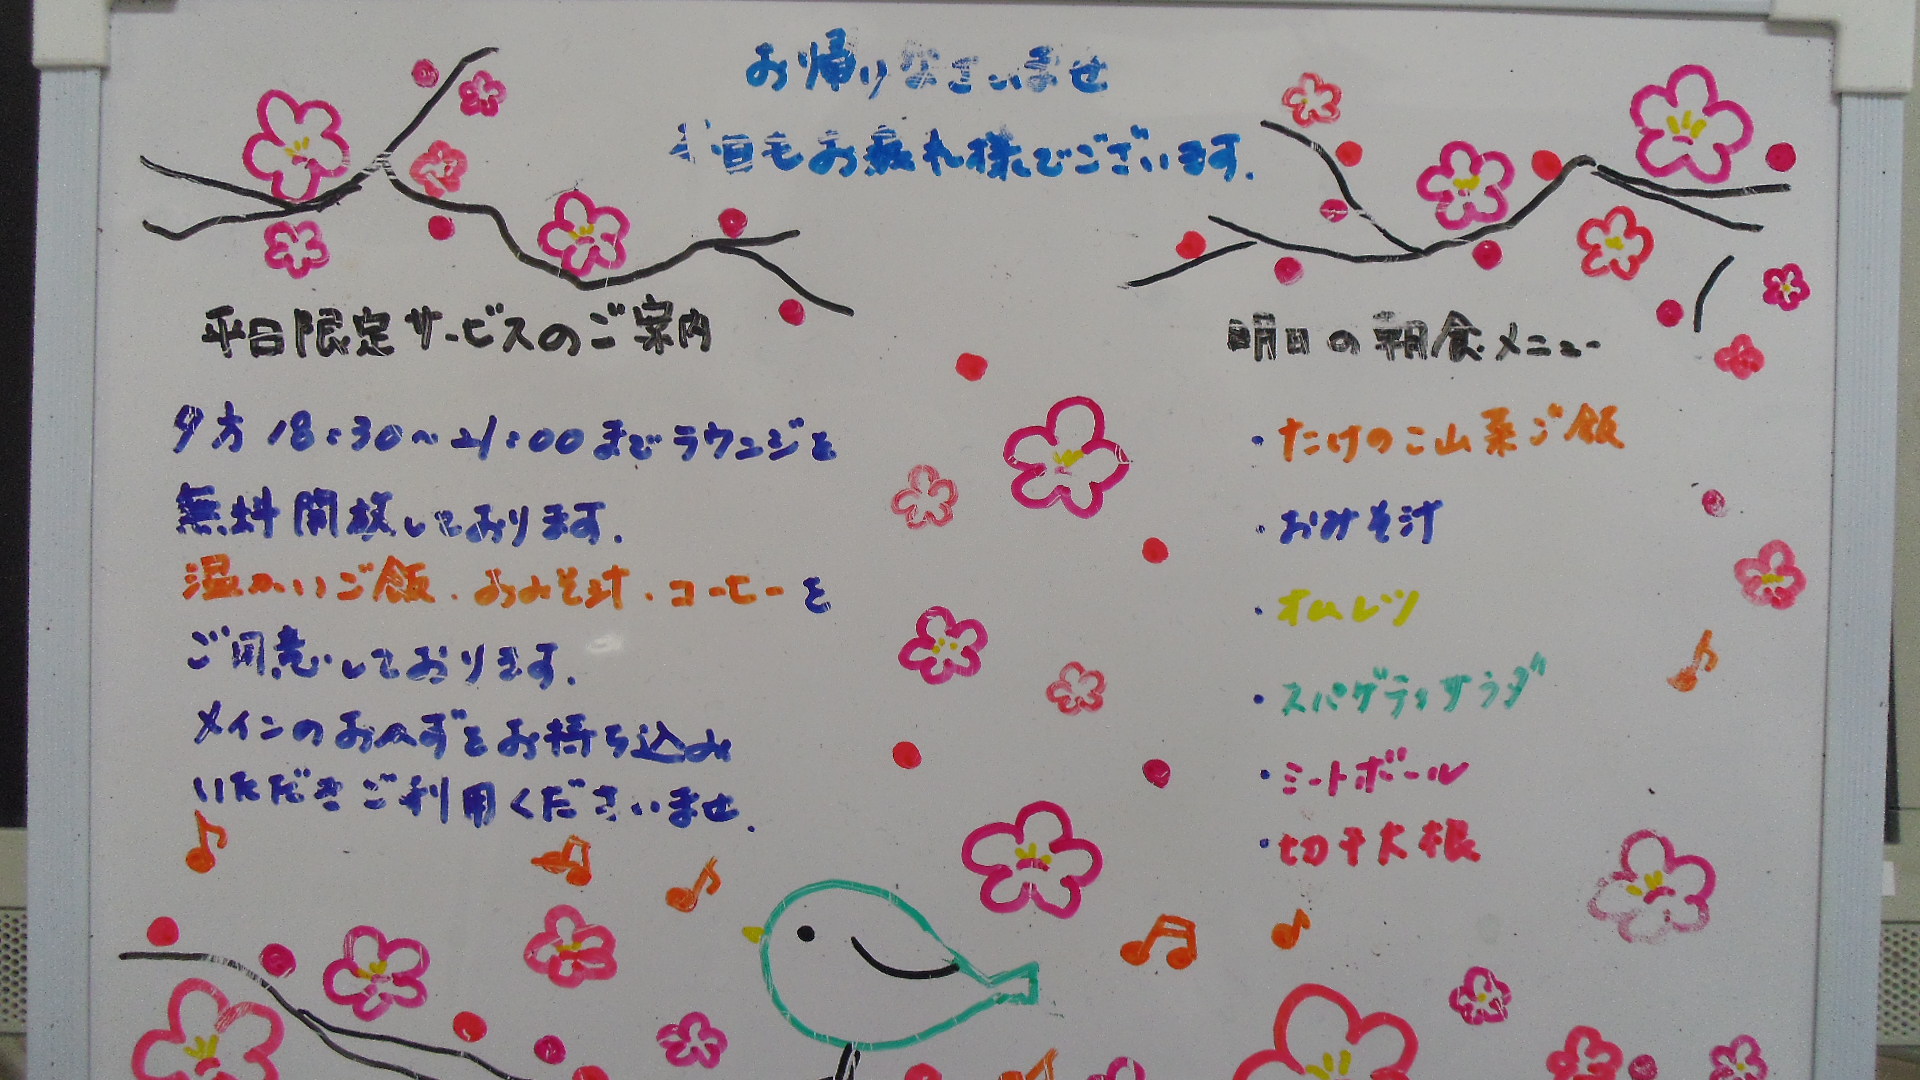 お帰りなさいませ
今日もお疲れ様でございます.
平日限定サービスのご案内
夕方18:30~21:00までラウンジを
無料開放しております.
温かいご飯・おみそ汁・コーヒーを
ご用意しております.
メインのおかずをお持ち込み
いただきご利用くださいませ.
明日の朝食メニュー
・たけのこ山菜ご飯
・おみそ汁
・オムレツ
・スパゲティサラダ
・ミートボール
・切干大根